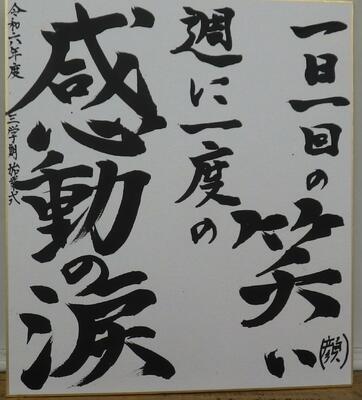 一日一回の
笑い(顔)
週に一度の
感動の涙
令和六年度 三学期始業式